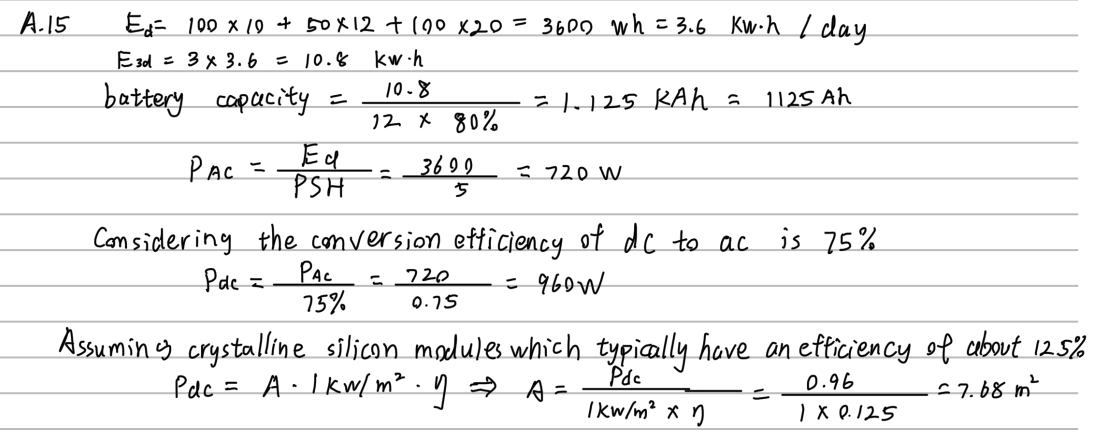 A.15 Ed = 100 × 10 + 50×12 + 100 ×20 = 3600 wh = 3.6 Kw·h / day
E3d = 3 × 3.6 = 10.8 kw·h
battery capacity = 10.8 / (12 × 80%) = 1.125 KAh = 1125 Ah
PAC = Ed / PSH = 3600 / 5 = 720 W
Considering the conversion efficiency of dc to ac is 75%
Pdc = PAC / 75% = 720 / 0.75 = 960W
Assuming crystalline silicon modules which typically have an efficiency of about 12.5%
Pdc = A · 1kw/m² · η ⇒ A = Pdc / (1kw/m² × η) = 0.96 / (1 × 0.125) = 7.68 m²